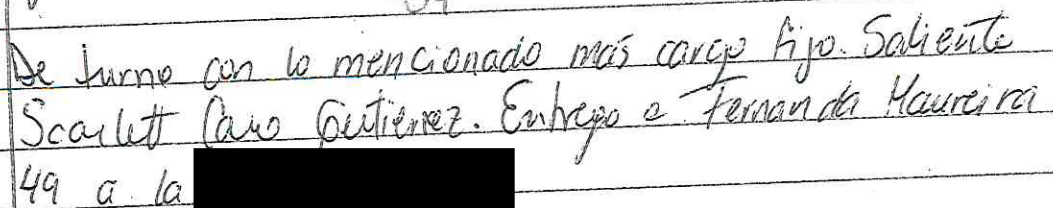 De turno con lo mencionado más cargo fijo. Saliente
Scarlett Caro Gutierrez. Entrego a Fernanda Maureira
49 a la